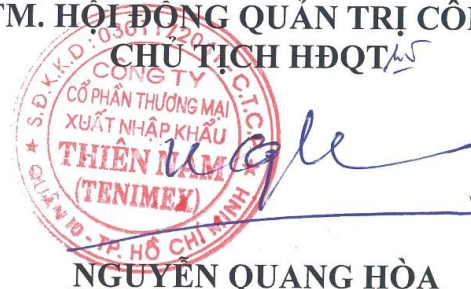 TM. HỘI ĐỒNG QUẢN TRỊ CÔ
CHỦ TỊCH HĐQT
S.Đ.K.K.D: C.T.C.P
CÔNG TY
CỔ PHẦN THƯƠNG MẠI
XUẤT NHẬP KHẨU
THIÊN NAM
(TENIMEX)
QUẬN 10 - TP. HỒ CHÍ MINH
NGUYỄN QUANG HÒA